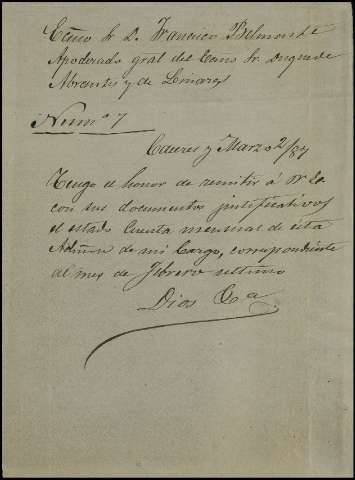 Ecmo Sr D. Francisco Belmonte
Apoderado gral del Ecmo Sr Duque de
Abrantes y de Linares
Numo 7
Caceres y Marzo 2/87
Tengo el honor de remitir á V. E.
con sus documentos justificativos
el estado Cuenta mensual de esta
Admon de mi Cargo, correspondiente
al mes de Febrero ultimo
Dios &a